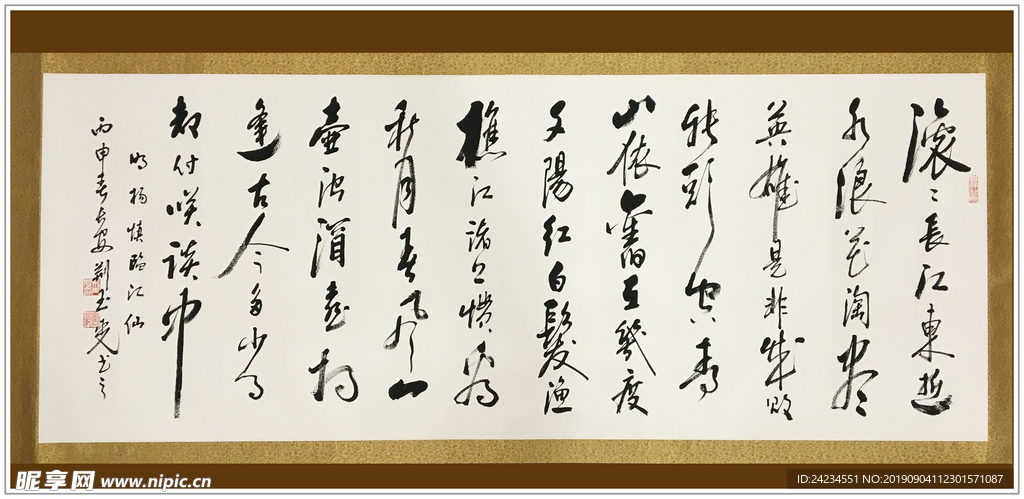 滚〻長江東逝
水浪花淘盡
英雄是非成敗
轉頭空青
山依舊在幾度
夕陽紅白髮漁
樵江渚上慣看
秋月春風一
壺濁酒喜相
逢古今多少事
都付笑談中
明楊慎臨江仙
丙申春长安荆玉书之
昵享网 www.nipic.cn
ID:24234551 NO:20190904112301571087